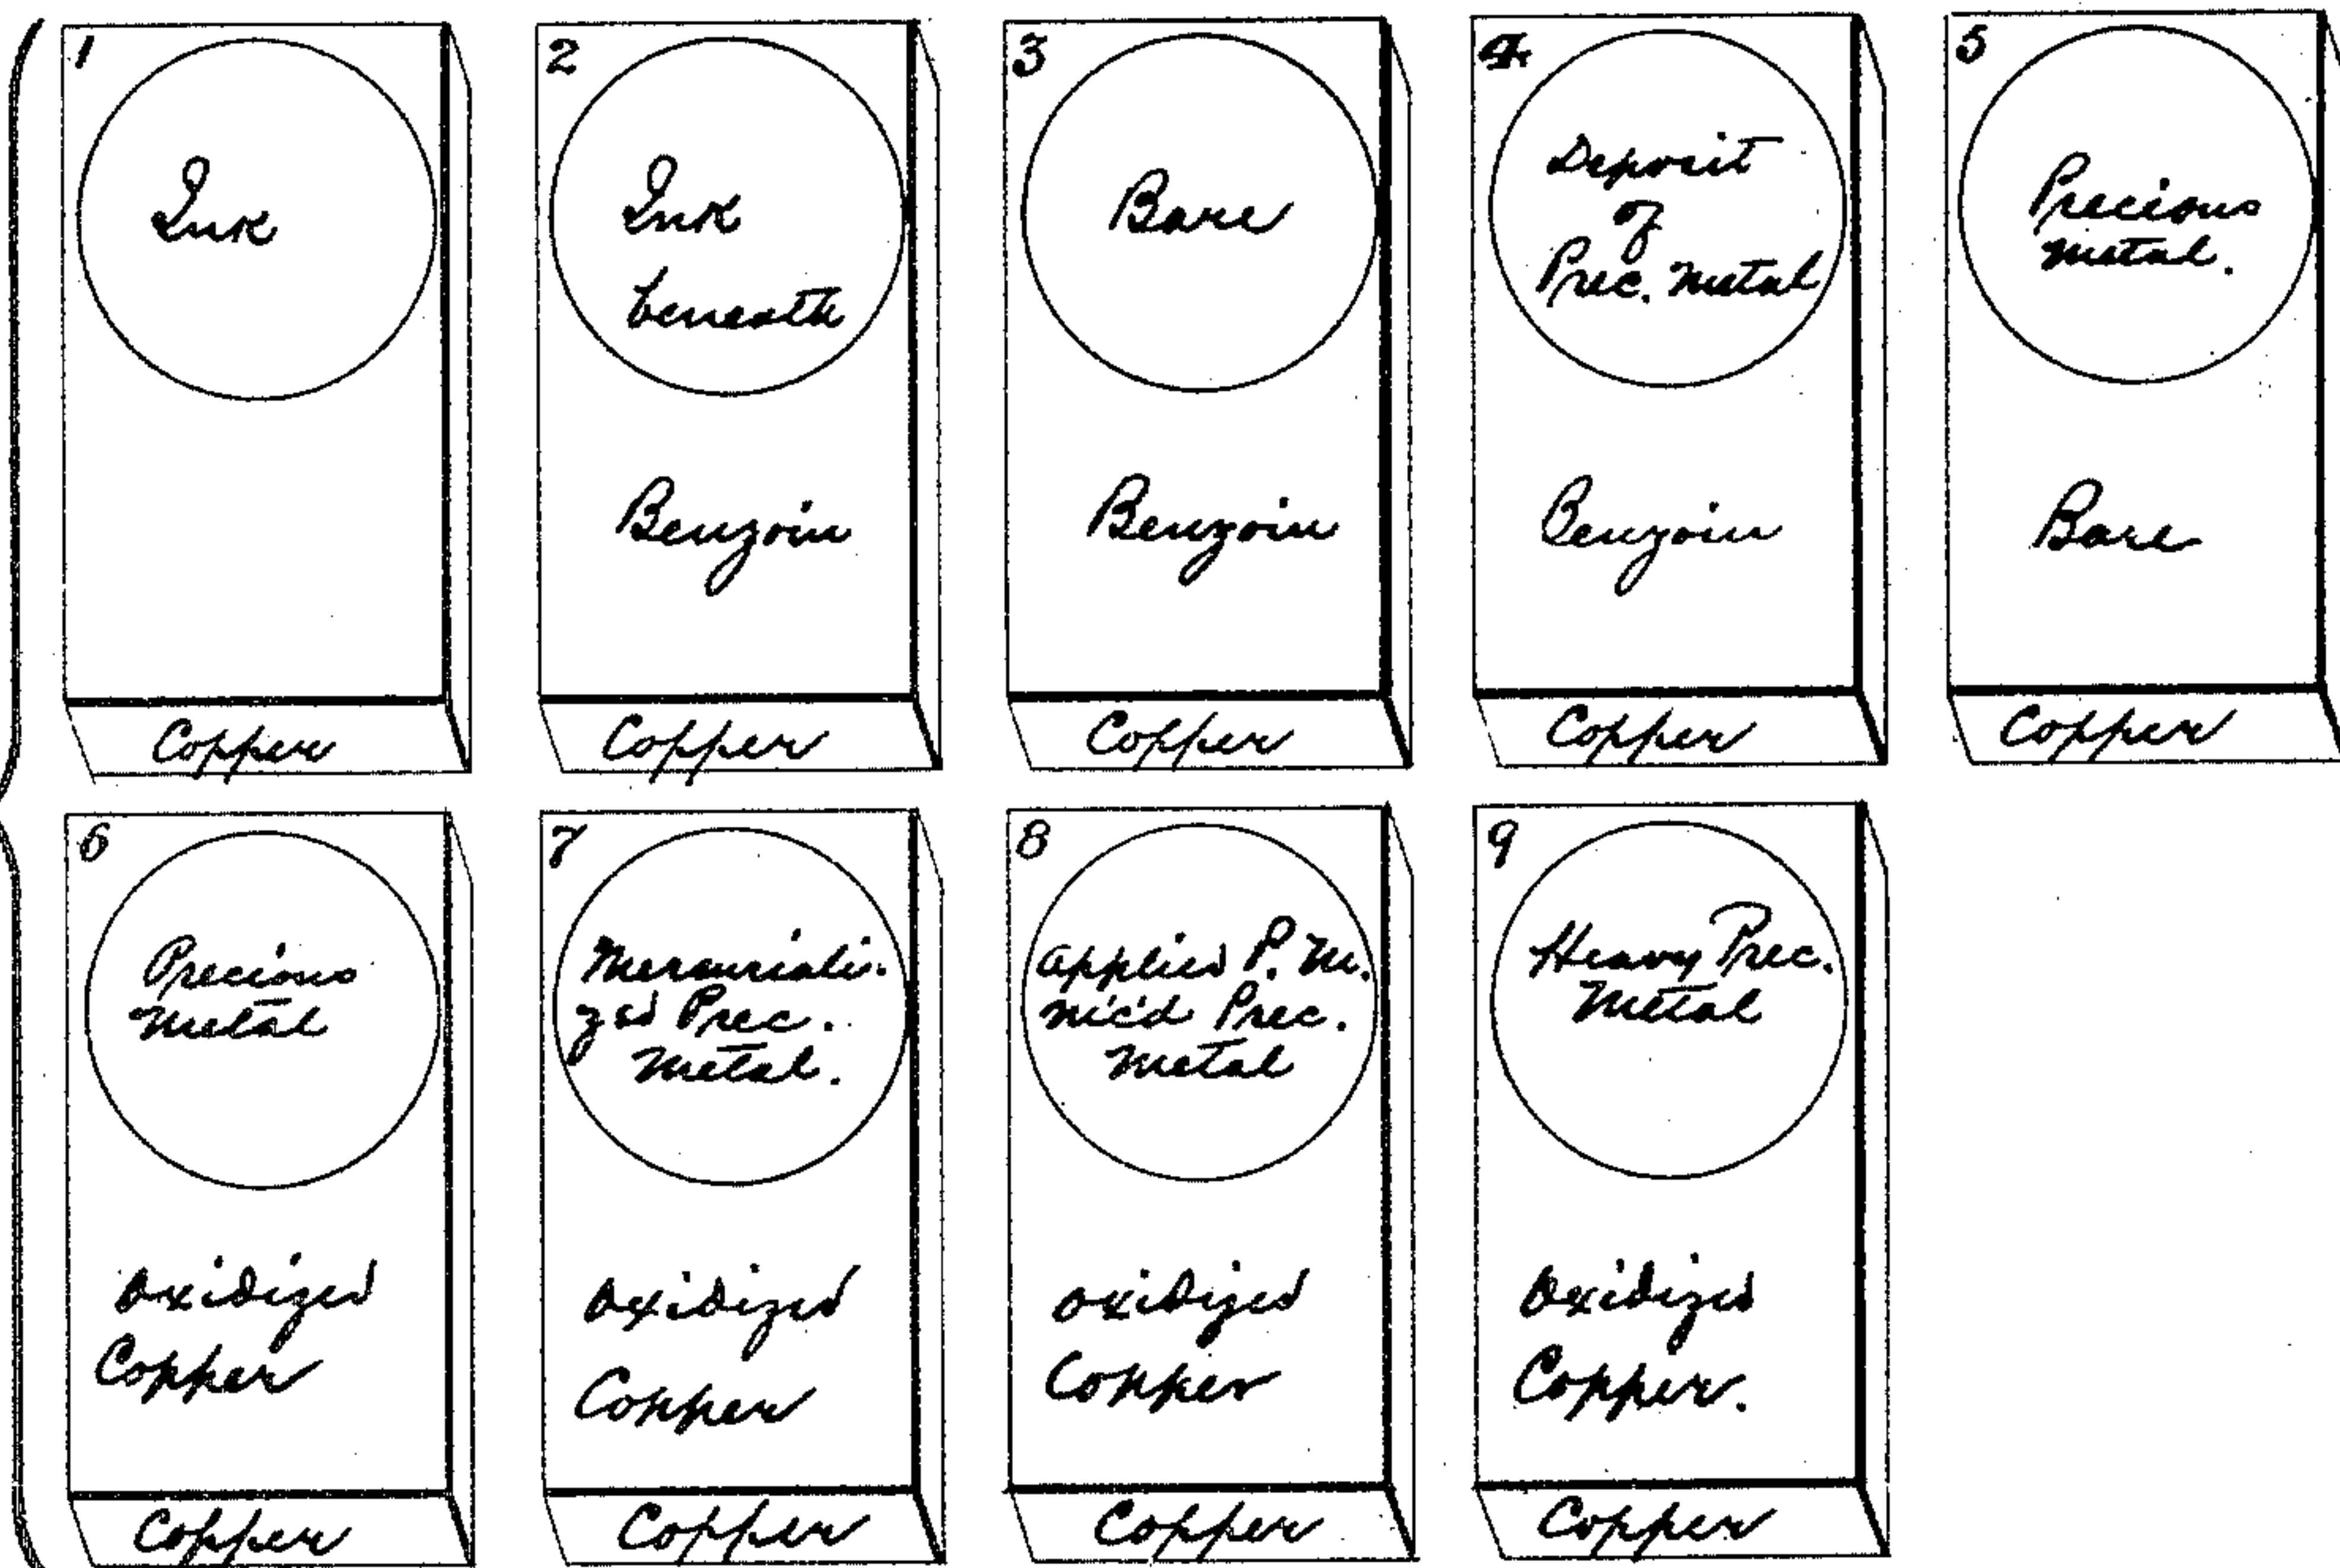 1
Ink
Copper
2
Ink
beneath
Benzoin
Copper
3
Bare
Benzoin
Copper
4
Deposit
of
Prec. Metal
Benzoin
Copper
5
Precious
Metal.
Bare
Copper
6
Precious
Metal
Oxidized
Copper
Copper
7
Mercuriali-
zed Prec.
Metal.
Oxidized
Copper
Copper
8
Applied P. M.
Prec.
Metal
Oxidized
Copper
Copper
9
Heavy Prec.
Metal
Oxidized
Copper.
Copper